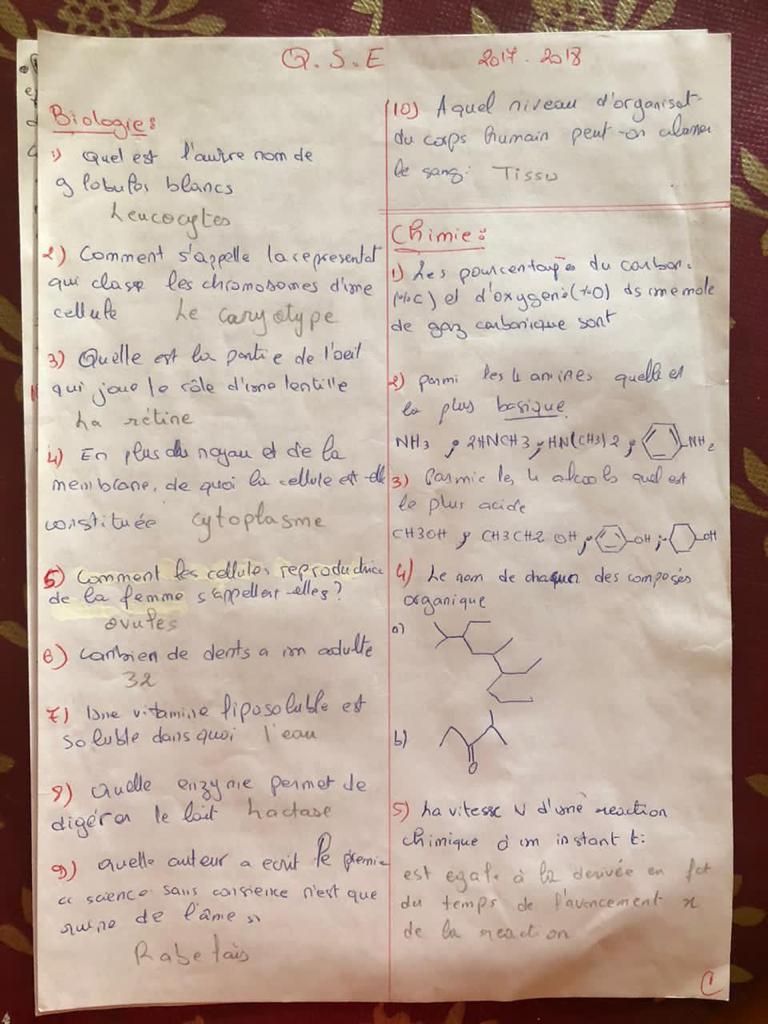 Q.S.E 2017-2018
Biologie:
1) Quel est l'autre nom de
globules blancs
Leucocytes
2) Comment s'appelle la representat
qui classe les chromosomes d'une
cellule Le caryotype
3) Quelle est la partie de l'oeil
qui joue le rôle d'une lentille
La rétine
4) En plus du noyau et de la
membrane, de quoi la cellule est-elle
constituée cytoplasme
5) Comment les cellules reproductrice
de la femme s'appellent-elles?
ovules
6) Combien de dents a un adulte
32
7) Une vitamine liposoluble est
soluble dans quoi l'eau
8) Quelle enzyme permet de
digérer le lait Lactase
9) Quelle auteur a ecrit le premie
« science sans consience n'est que
ruine de l'âme »
Rabelais
10) A quel niveau d'organisat-
du corps humain peut-on classer
le sang: Tissu
Chimie:
1) Les pourcentages du carbon.
(%C) et d'oxygene (%O) ds une mole
de gaz carbonique sont
2) Parmi les 4 amines quelle est
la plus basique
NH3, 2HNCH3, HN(CH3)2, NH2
3) Parmie les 4 alcools quel est
le plus acide
CH3OH, CH3CH2 OH, OH, OH
4) Le nom de chaqun des composés
organique
a)
b)
O
5) La vitesse V d'une reaction
chimique à un instant t:
est egale à la derivée en fct
du temps de l'avancement x
de la reaction